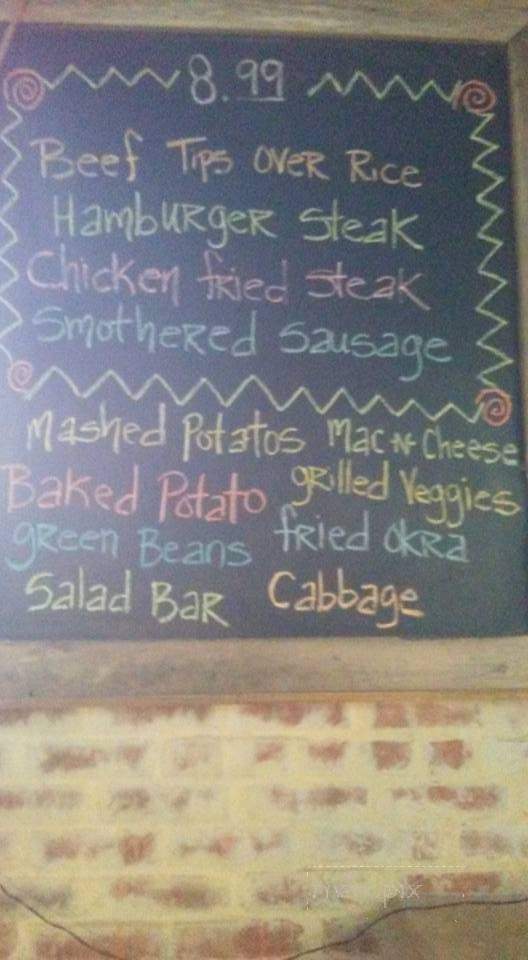 8.99
Beef Tips over Rice
Hamburger Steak
Chicken fried steak
Smothered Sausage
Mashed Potatos Mac N Cheese
Baked Potato grilled Veggies
green Beans fried okra
Salad Bar Cabbage